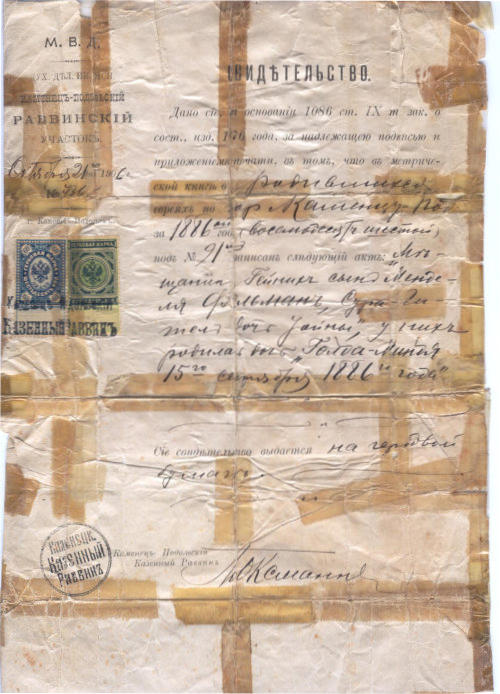 М. В. Д.
КАМЕНЕЦЪ-ПОДОЛЬСКІЙ
РАВВИНСКІЙ
УЧАСТОКЪ.
Октября 21 1906 г.
№
г. Каменецъ-Подольскъ.
СВИДѢТЕЛЬСТВО.
Дано сіе, на основаніи 1086 ст. IX т. зак. о
сост., изд. 1876 года, за надлежащею подписью и
приложеніемъ печати, въ томъ, что въ метриче-
ской книгѣ о родившихся
евреяхъ по гор. Каменцу-Под.
за 1886 годъ (восемьдесятъ шестой)
подъ № 21 записанъ слѣдующій актъ: „Мѣ-
щанина Гейнихъ сынъ Менде-
ля Фельманъ, Сура-Ги-
тель дочь у нихъ
родилась дочь „Голда-Миндя
15го сентября 1886 го года"
Сіе свидѣтельство выдается на гербовой
бумагѣ.
КАМЕНЕЦЪ-ПОДОЛЬСКІЙ
КАЗЕННЫЙ РАВВИНЪ
Каменецъ-Подольскій
Казенный Раввинъ
КАМЕНЕЦК.
КАЗЕННЫЙ
РАВВИНЪ